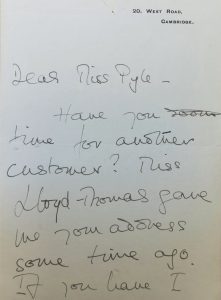 20, WEST ROAD,
CAMBRIDGE.
Dear Miss Pyle -
Have you room
time for another
customer? Miss
Lloyd-Thomas gave
me your address
some time ago.
If you have I